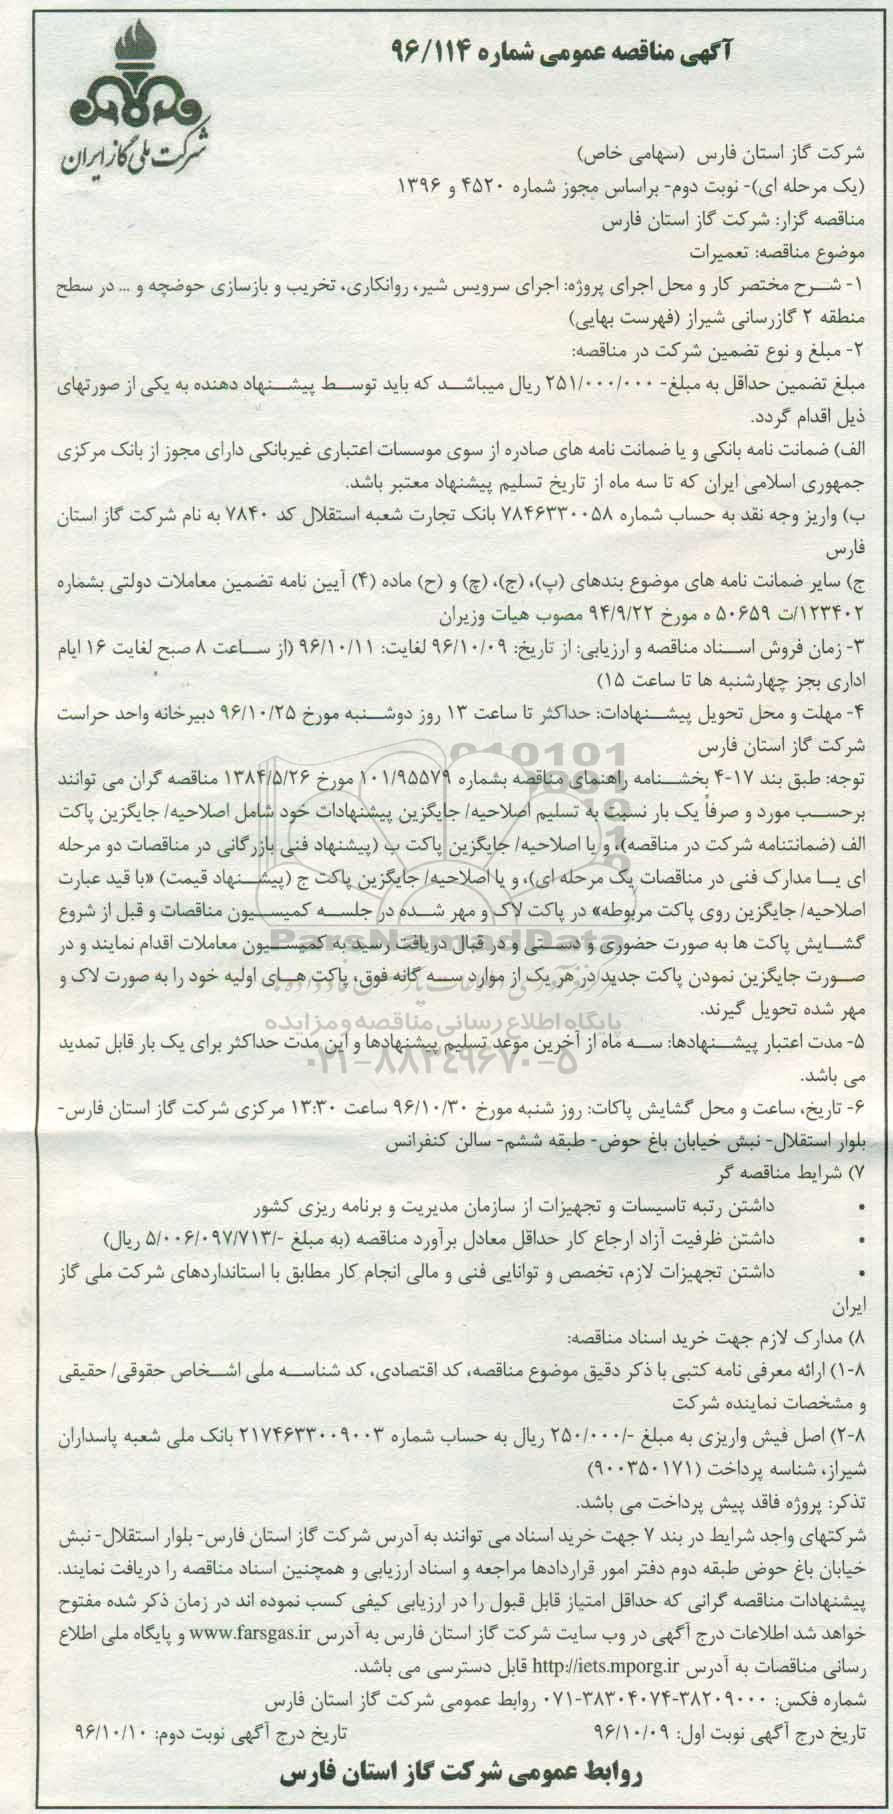 آگهی مناقصه عمومی شماره ۹۶/۱۱۴
شرکت ملی گاز ایران
شرکت گاز استان فارس (سهامی خاص)
(یک مرحله ای)- نوبت دوم- براساس مجوز شماره ۴۵۲۰ و ۱۳۹۶
مناقصه گزار: شرکت گاز استان فارس
موضوع مناقصه: تعمیرات
۱- شرح مختصر کار و محل اجرای پروژه: اجرای سرویس شیر، روانکاری، تخریب و بازسازی حوضچه و ... در سطح
منطقه ۲ گازرسانی شیراز (فهرست بهایی)
۲- مبلغ و نوع تضمین شرکت در مناقصه:
مبلغ تضمین حداقل به مبلغ- ۲۵۱/۰۰۰/۰۰۰ ریال میباشد که باید توسط پیشنهاد دهنده به یکی از صورتهای
ذیل اقدام گردد.
الف) ضمانت نامه بانکی و یا ضمانت نامه های صادره از سوی موسسات اعتباری غیربانکی دارای مجوز از بانک مرکزی
جمهوری اسلامی ایران که تا سه ماه از تاریخ تسلیم پیشنهاد معتبر باشد.
ب) واریز وجه نقد به حساب شماره ۷۸۴۶۳۳۰۰۵۸ بانک تجارت شعبه استقلال کد ۷۸۴۰ به نام شرکت گاز استان
فارس
ج) سایر ضمانت نامه های موضوع بندهای (پ)، (ج)، (چ) و (ح) ماده (۴) آیین نامه تضمین معاملات دولتی بشماره
۱۲۳۴۰۲/ت ۵۰۶۵۹ ه مورخ ۹۴/۹/۲۲ مصوب هیات وزیران
۳- زمان فروش اسناد مناقصه و ارزیابی: از تاریخ: ۹۶/۱۰/۰۹ لغایت: ۹۶/۱۰/۱۱ (از ساعت ۸ صبح لغایت ۱۶ ایام
اداری بجز چهارشنبه ها تا ساعت ۱۵)
۴- مهلت و محل تحویل پیشنهادات: حداکثر تا ساعت ۱۳ روز دوشنبه مورخ ۹۶/۱۰/۲۵ دبیرخانه واحد حراست
شرکت گاز استان فارس
توجه: طبق بند ۱۷-۴ بخشنامه راهنمای مناقصه بشماره ۱۰۱/۹۵۵۷۹ مورخ ۱۳۸۴/۵/۲۶ مناقصه گران می توانند
برحسب مورد و صرفاً یک بار نسبت به تسلیم اصلاحیه/ جایگزین پیشنهادات خود شامل اصلاحیه/ جایگزین پاکت
الف (ضمانتنامه شرکت در مناقصه)، و یا اصلاحیه/ جایگزین پاکت ب (پیشنهاد فنی بازرگانی در مناقصات دو مرحله
ای یا مدارک فنی در مناقصات یک مرحله ای)، و یا اصلاحیه/ جایگزین پاکت ج (پیشنهاد قیمت) «با قید عبارت
اصلاحیه/ جایگزین روی پاکت مربوطه» در پاکت لاک و مهر شده در جلسه کمیسیون مناقصات و قبل از شروع
گشایش پاکت ها به صورت حضوری و دستی و در قبال دریافت رسید به کمیسیون معاملات اقدام نمایند و در
صورت جایگزین نمودن پاکت جدید در هر یک از موارد سه گانه فوق، پاکت های اولیه خود را به صورت لاک و
مهر شده تحویل گیرند.
ParsNamadData
پایگاه اطلاع رسانی مناقصه و مزایده
۰۲۱-۸۸۳۴۹۶۷۰-۵
۵- مدت اعتبار پیشنهادها: سه ماه از آخرین موعد تسلیم پیشنهادها و این مدت حداکثر برای یک بار قابل تمدید
می باشد.
۶- تاریخ، ساعت و محل گشایش پاکات: روز شنبه مورخ ۹۶/۱۰/۳۰ ساعت ۱۳:۳۰ مرکزی شرکت گاز استان فارس-
بلوار استقلال- نبش خیابان باغ حوض- طبقه ششم- سالن کنفرانس
۷) شرایط مناقصه گر
• داشتن رتبه تاسیسات و تجهیزات از سازمان مدیریت و برنامه ریزی کشور
• داشتن ظرفیت آزاد ارجاع کار حداقل معادل برآورد مناقصه (به مبلغ -/۵/۰۰۶/۰۹۷/۷۱۳ ریال)
• داشتن تجهیزات لازم، تخصص و توانایی فنی و مالی انجام کار مطابق با استانداردهای شرکت ملی گاز
ایران
۸) مدارک لازم جهت خرید اسناد مناقصه:
۸-۱) ارائه معرفی نامه کتبی با ذکر دقیق موضوع مناقصه، کد اقتصادی، کد شناسه ملی اشخاص حقوقی/ حقیقی
و مشخصات نماینده شرکت
۸-۲) اصل فیش واریزی به مبلغ -/۲۵۰/۰۰۰ ریال به حساب شماره ۲۱۷۴۶۳۳۰۰۹۰۰۳ بانک ملی شعبه پاسداران
شیراز، شناسه پرداخت (۹۰۰۳۵۰۱۷۱)
تذکر: پروژه فاقد پیش پرداخت می باشد.
شرکتهای واجد شرایط در بند ۷ جهت خرید اسناد می توانند به آدرس شرکت گاز استان فارس- بلوار استقلال- نبش
خیابان باغ حوض طبقه دوم دفتر امور قراردادها مراجعه و اسناد ارزیابی و همچنین اسناد مناقصه را دریافت نمایند.
پیشنهادات مناقصه گرانی که حداقل امتیاز قابل قبول را در ارزیابی کیفی کسب نموده اند در زمان ذکر شده مفتوح
خواهد شد اطلاعات درج آگهی در وب سایت شرکت گاز استان فارس به آدرس www.farsgas.ir و پایگاه ملی اطلاع
رسانی مناقصات به آدرس http://iets.mporg.ir قابل دسترسی می باشد.
شماره فکس: ۳۸۲۰۹۰۰۰-۳۸۳۰۴۰۷۴-۰۷۱ روابط عمومی شرکت گاز استان فارس
تاریخ درج آگهی نوبت اول: ۹۶/۱۰/۰۹ تاریخ درج آگهی نوبت دوم: ۹۶/۱۰/۱۰
روابط عمومی شرکت گاز استان فارس